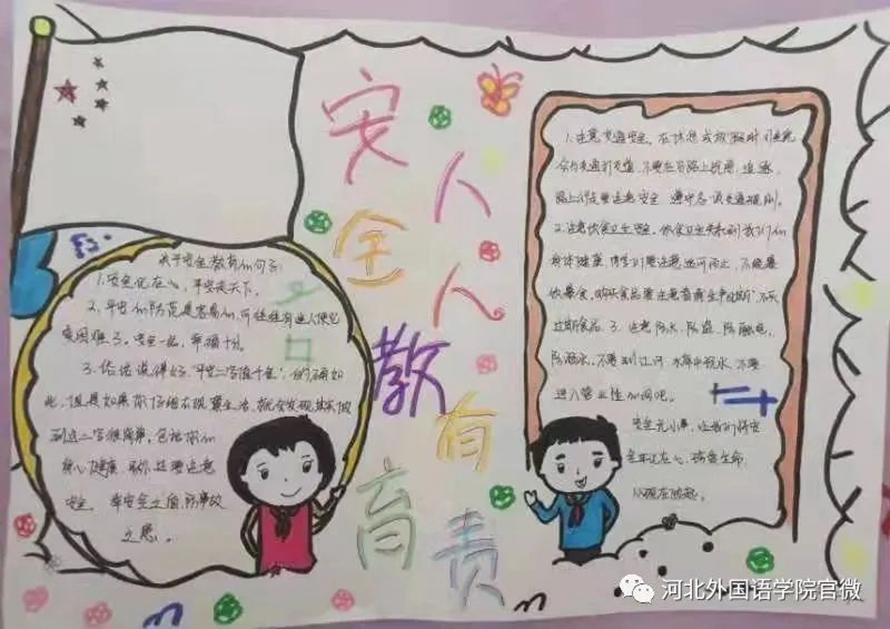 安全教育
人人有责
关于安全教育的句子:
1.安全记在心,平安走天下。
2.平安的防范是容易的,可往往有些人使它
变困难了。安全一起,幸福十分。
3.俗话说得好,"平安二字值千金",的确如
此,但是如果你仔细去观察生活,就会发现其实做
到这二字很简单,包括你的
身心健康,
安全,
之患。
1.注意交通安全。在休息或放假时
路上行走要注意安全,遵守各项交通规则。
2.注意饮食卫生安全。饮食卫生关系到我们的
身体健康,同学们要注意适可而止,不能暴
饮暴食,购买食品要注意查看生产日期,不买
过期食品。3.注意防火,防盗,防触电,
防溺水,不要到江河、水库中玩水,不要
进入营业性网吧。
安全无小事,让我们将安
全牢记在心,珍惜生命,
从现在做起。
河北外国语学院官微